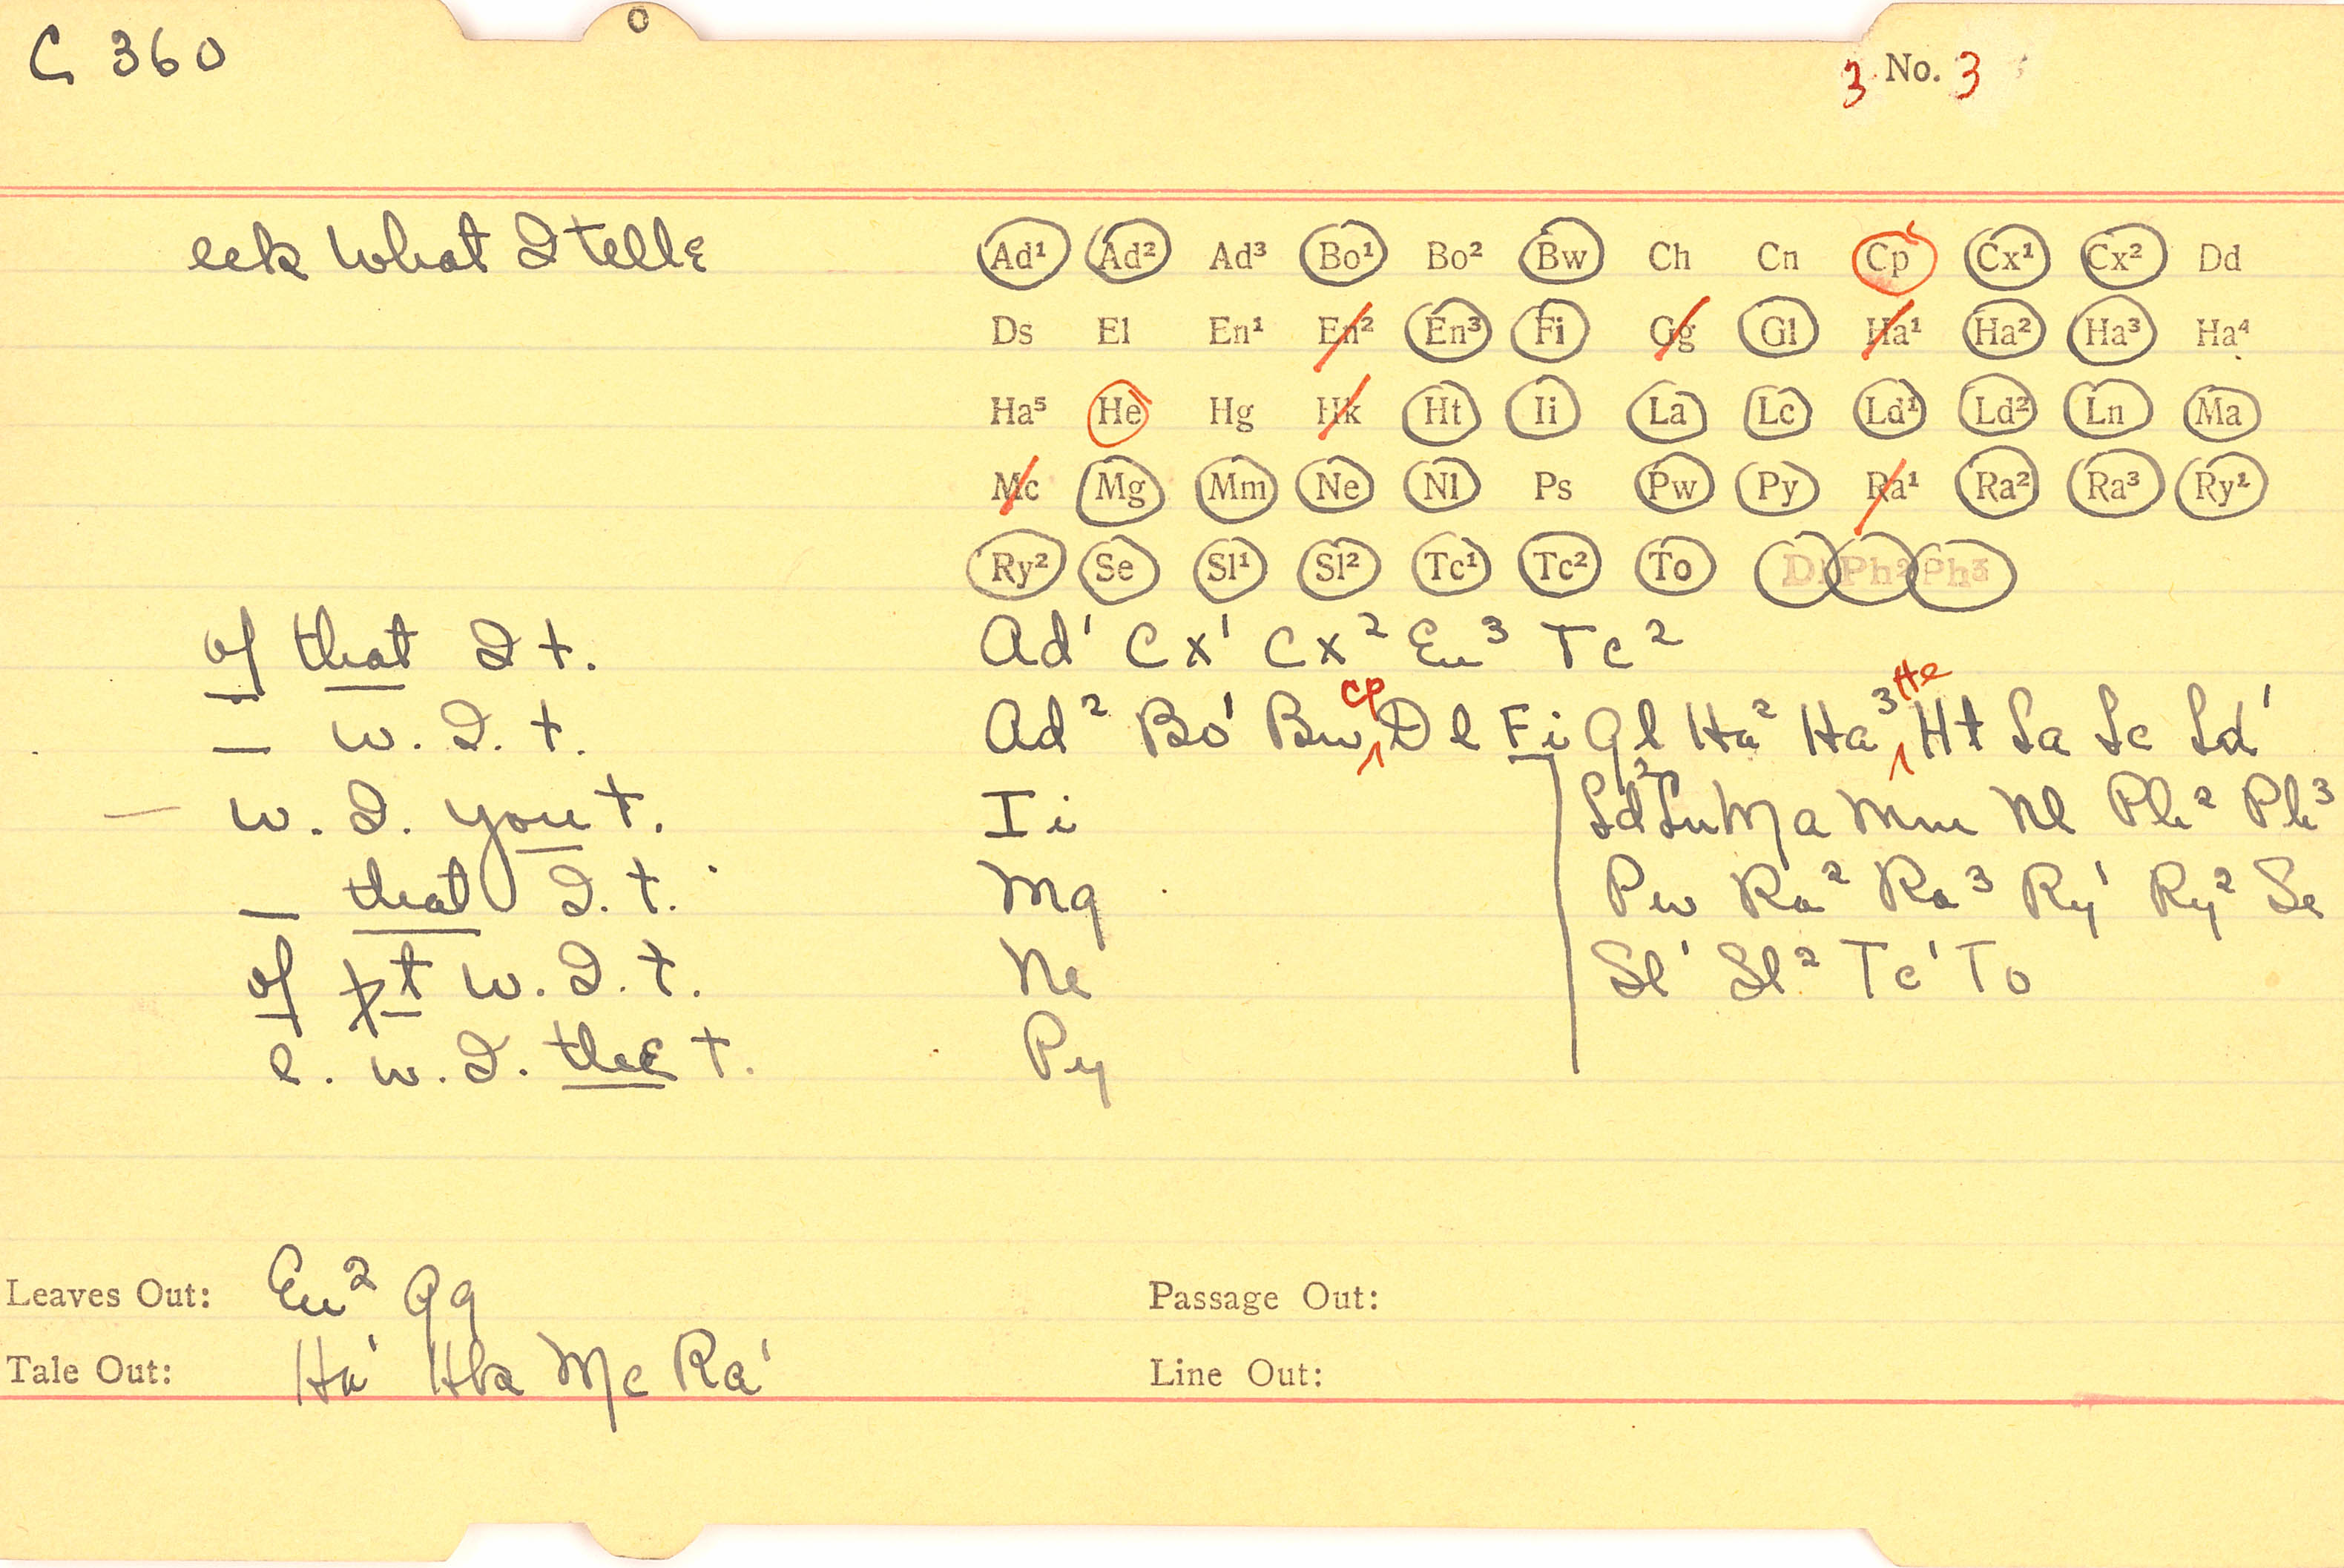 C 360
3 No. 3
eek what I telle
Ad¹ Ad² Ad³ Bo¹ Bo² Bw Ch Cn Cp Cx¹ Cx² Dd
Ds El En¹ En² En³ Fi Gg Gl Ha¹ Ha² Ha³ Ha⁴
Ha⁵ He Hg Hk Ht Ii La Lc Ld¹ Ld² Ln Ma
Mc Mg Mm Ne Nl Ps Pw Py Ra¹ Ra² Ra³ Ry¹
Ry² Se Sl¹ Sl² Tc¹ Tc² To Dl Ph² Ph³
of that I t. Ad¹ Cx¹ Cx² En³ Tc²
— w. I. t. Ad² Bo¹ Bw Cp Dl Fi Gl Ha² Ha³ He Ht La Lc Ld¹
— w. I. you t. Ii Ld² Ln Ma Mm Nl Ph² Ph³
— that I. t. Mg Pw Ra² Ra³ Ry¹ Ry² Se
of yt w. I. t. Ne Sl¹ Sl² Tc¹ To
e. w. I. thee t. Py
Leaves Out: En² Gg
Passage Out:
Tale Out: Ha¹ Hk Mc Ra¹
Line Out: